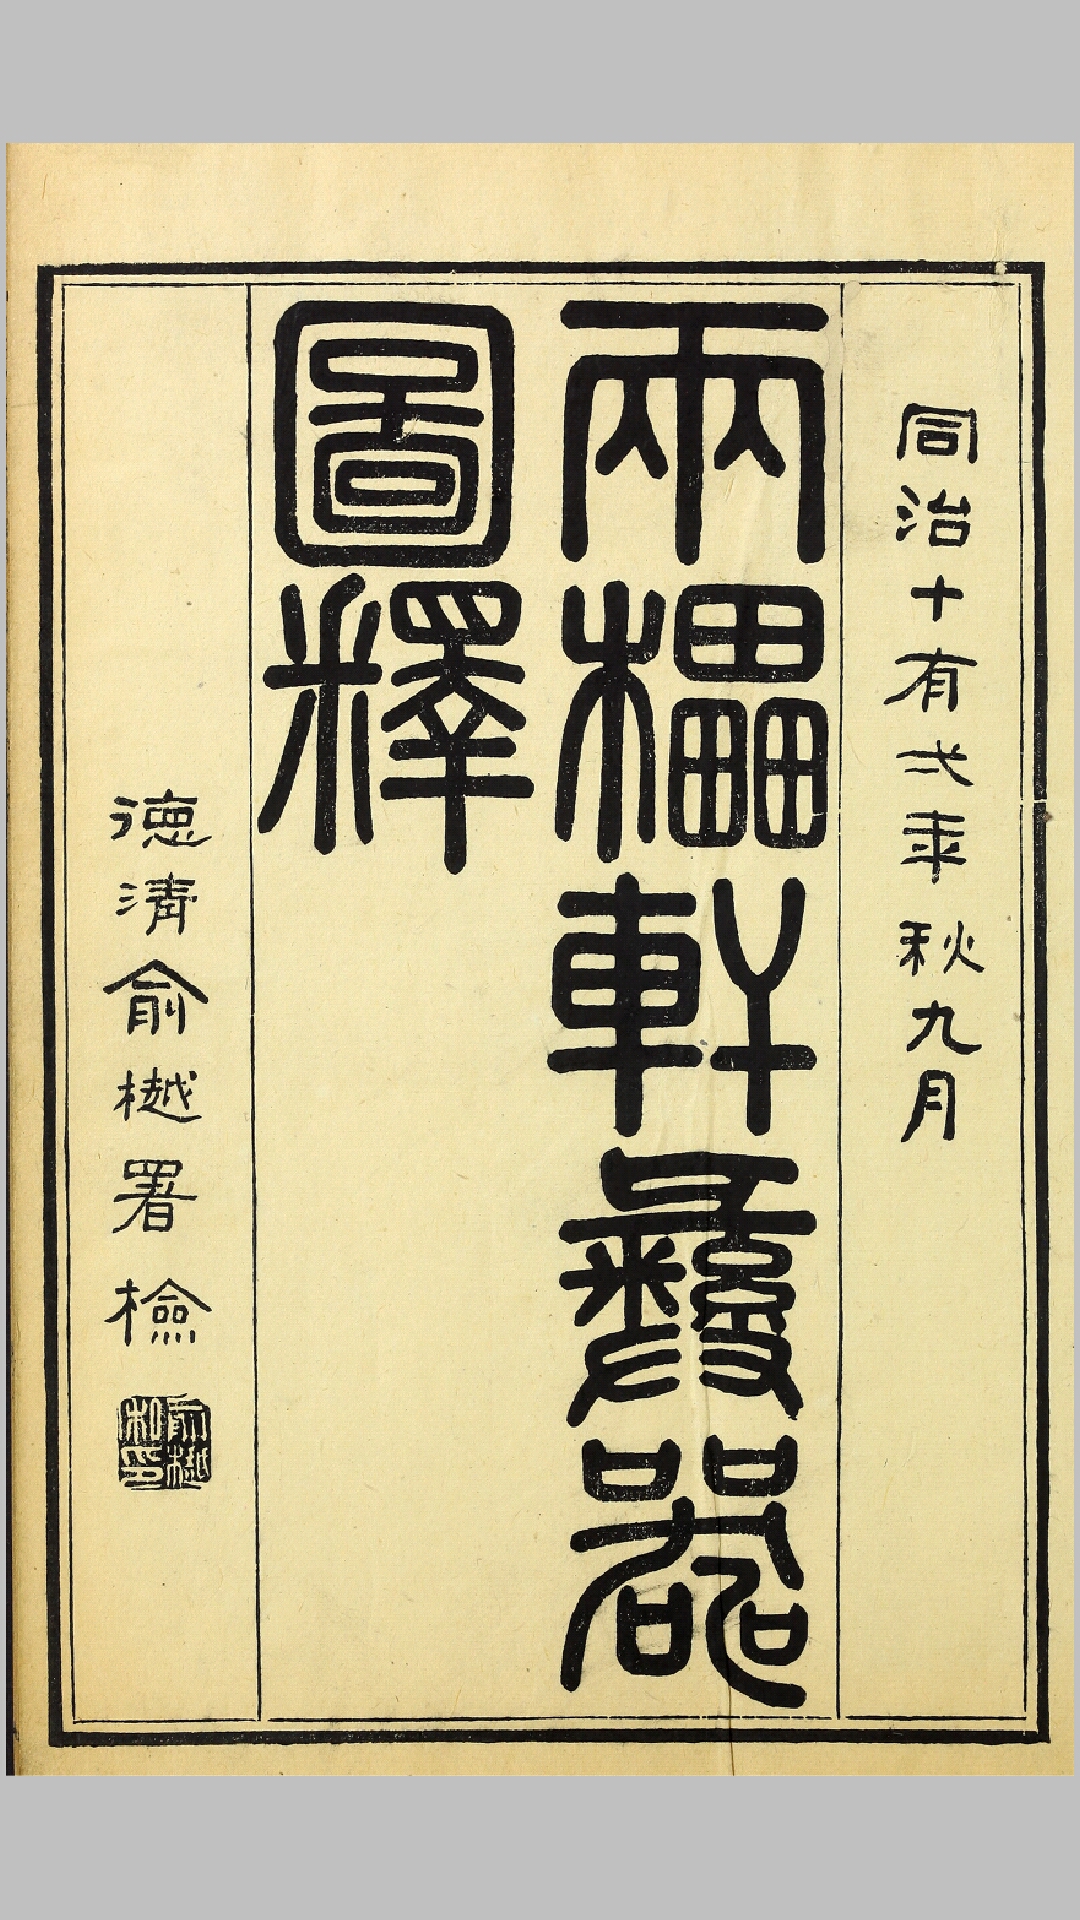 同治十有弍年秋九月
兩櫑軒彝器
圖釋
德清俞樾署檢
俞樾
私印